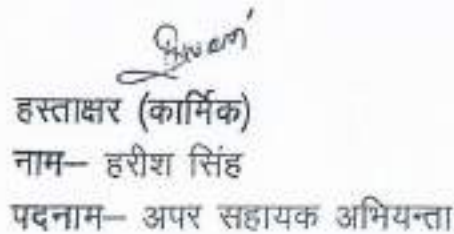 हस्ताक्षर (कार्मिक)
नाम– हरीश सिंह
पदनाम– अपर सहायक अभियन्ता